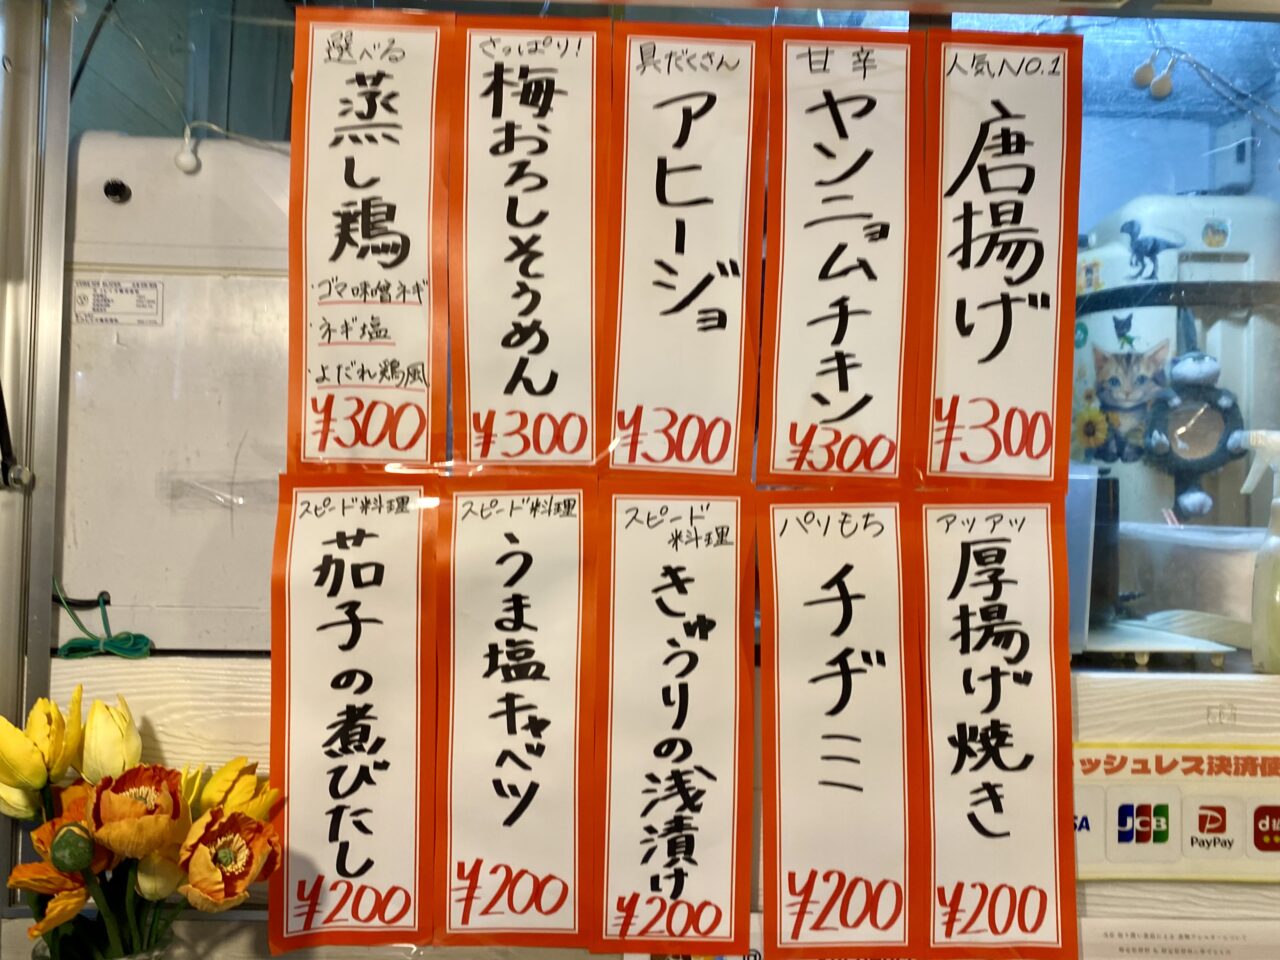 人気NO.1
唐揚げ
¥300
甘辛
ヤンニョムチキン
¥300
具だくさん
アヒージョ
¥300
さっぱり!
梅おろしそうめん
¥300
選べる
蒸し鶏
・ゴマ味噌ネギ
・ネギ塩
・よだれ鶏風
¥300
アツアツ
厚揚げ焼き
¥200
パリもち
チヂミ
¥200
スピード
料理
きゅうりの浅漬け
¥200
スピード料理
うま塩キャベツ
¥200
スピード料理
茄子の煮びたし
¥200
ッシュレス決済
JCB
PayPay